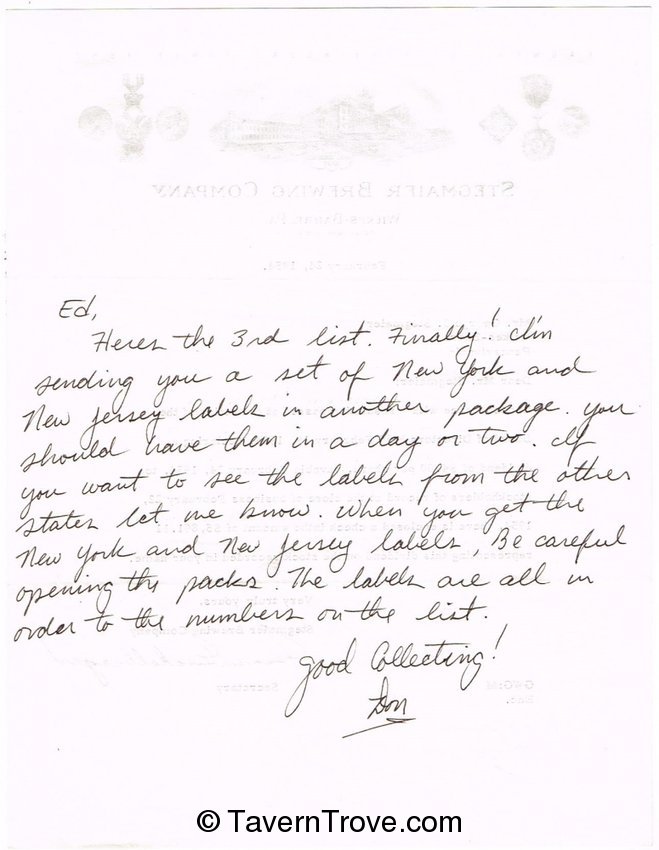 STEGMAIER BREWING COMPANY
WILKES-BARRE, PA.
February 24, 1954.
Ed,
Heres the 3rd list. Finally! I'm
sending you a set of New York and
New Jersey labels in another package. You
should have them in a day or two. If
you want to see the labels from the other
states let me know. When you get the
New York and New Jersey labels Be careful
opening the packs. The labels are all in
order to the numbers on the list.
Very truly yours,
Stegmaier Brewing Company
Good Collecting!
Secretary
Don
© TavernTrove.com